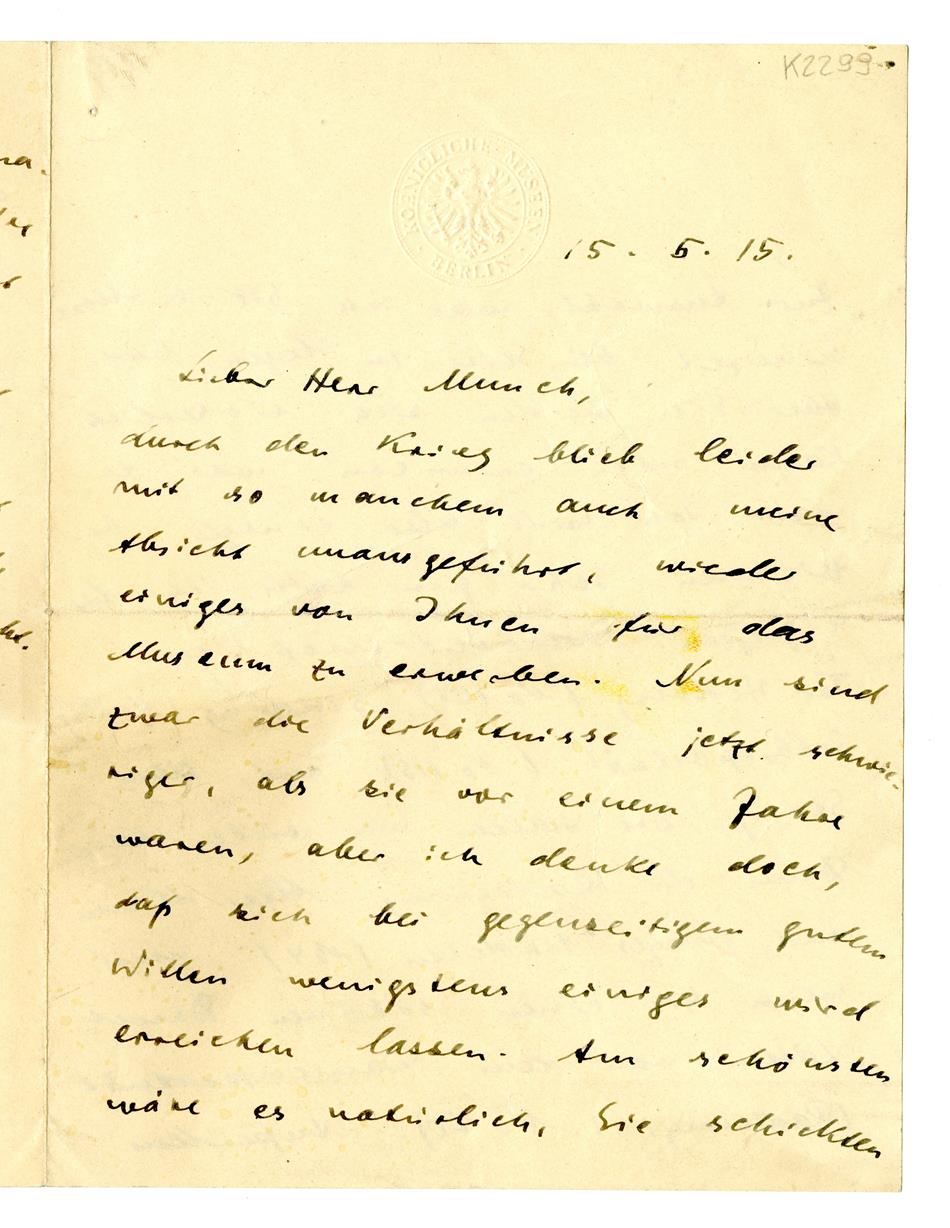 K2299
KOENIGLICHE · MUSEEN
· BERLIN ·
15. 5. 15.
Lieber Herr Munch,
durch den Krieg blieb leider
mit so manchem auch meine
Absicht unausgeführt, wieder
einiges von Ihnen für das
Museum zu erwerben. Nun sind
zwar die Verhältnisse jetzt schwie-
riger, als sie vor einem Jahre
waren, aber ich denke doch,
daß sich bei gegenseitigem guten
Willen wenigstens einiges wird
erreichen lassen. Am schönsten
wäre es natürlich, Sie schickten